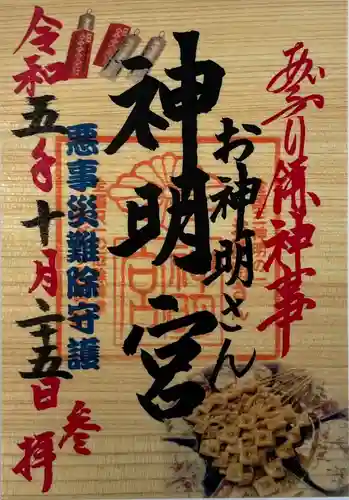 祭り保神事
お神明さん
神明宮
悪事災難除守護
令和五年十月二十五日
参拝